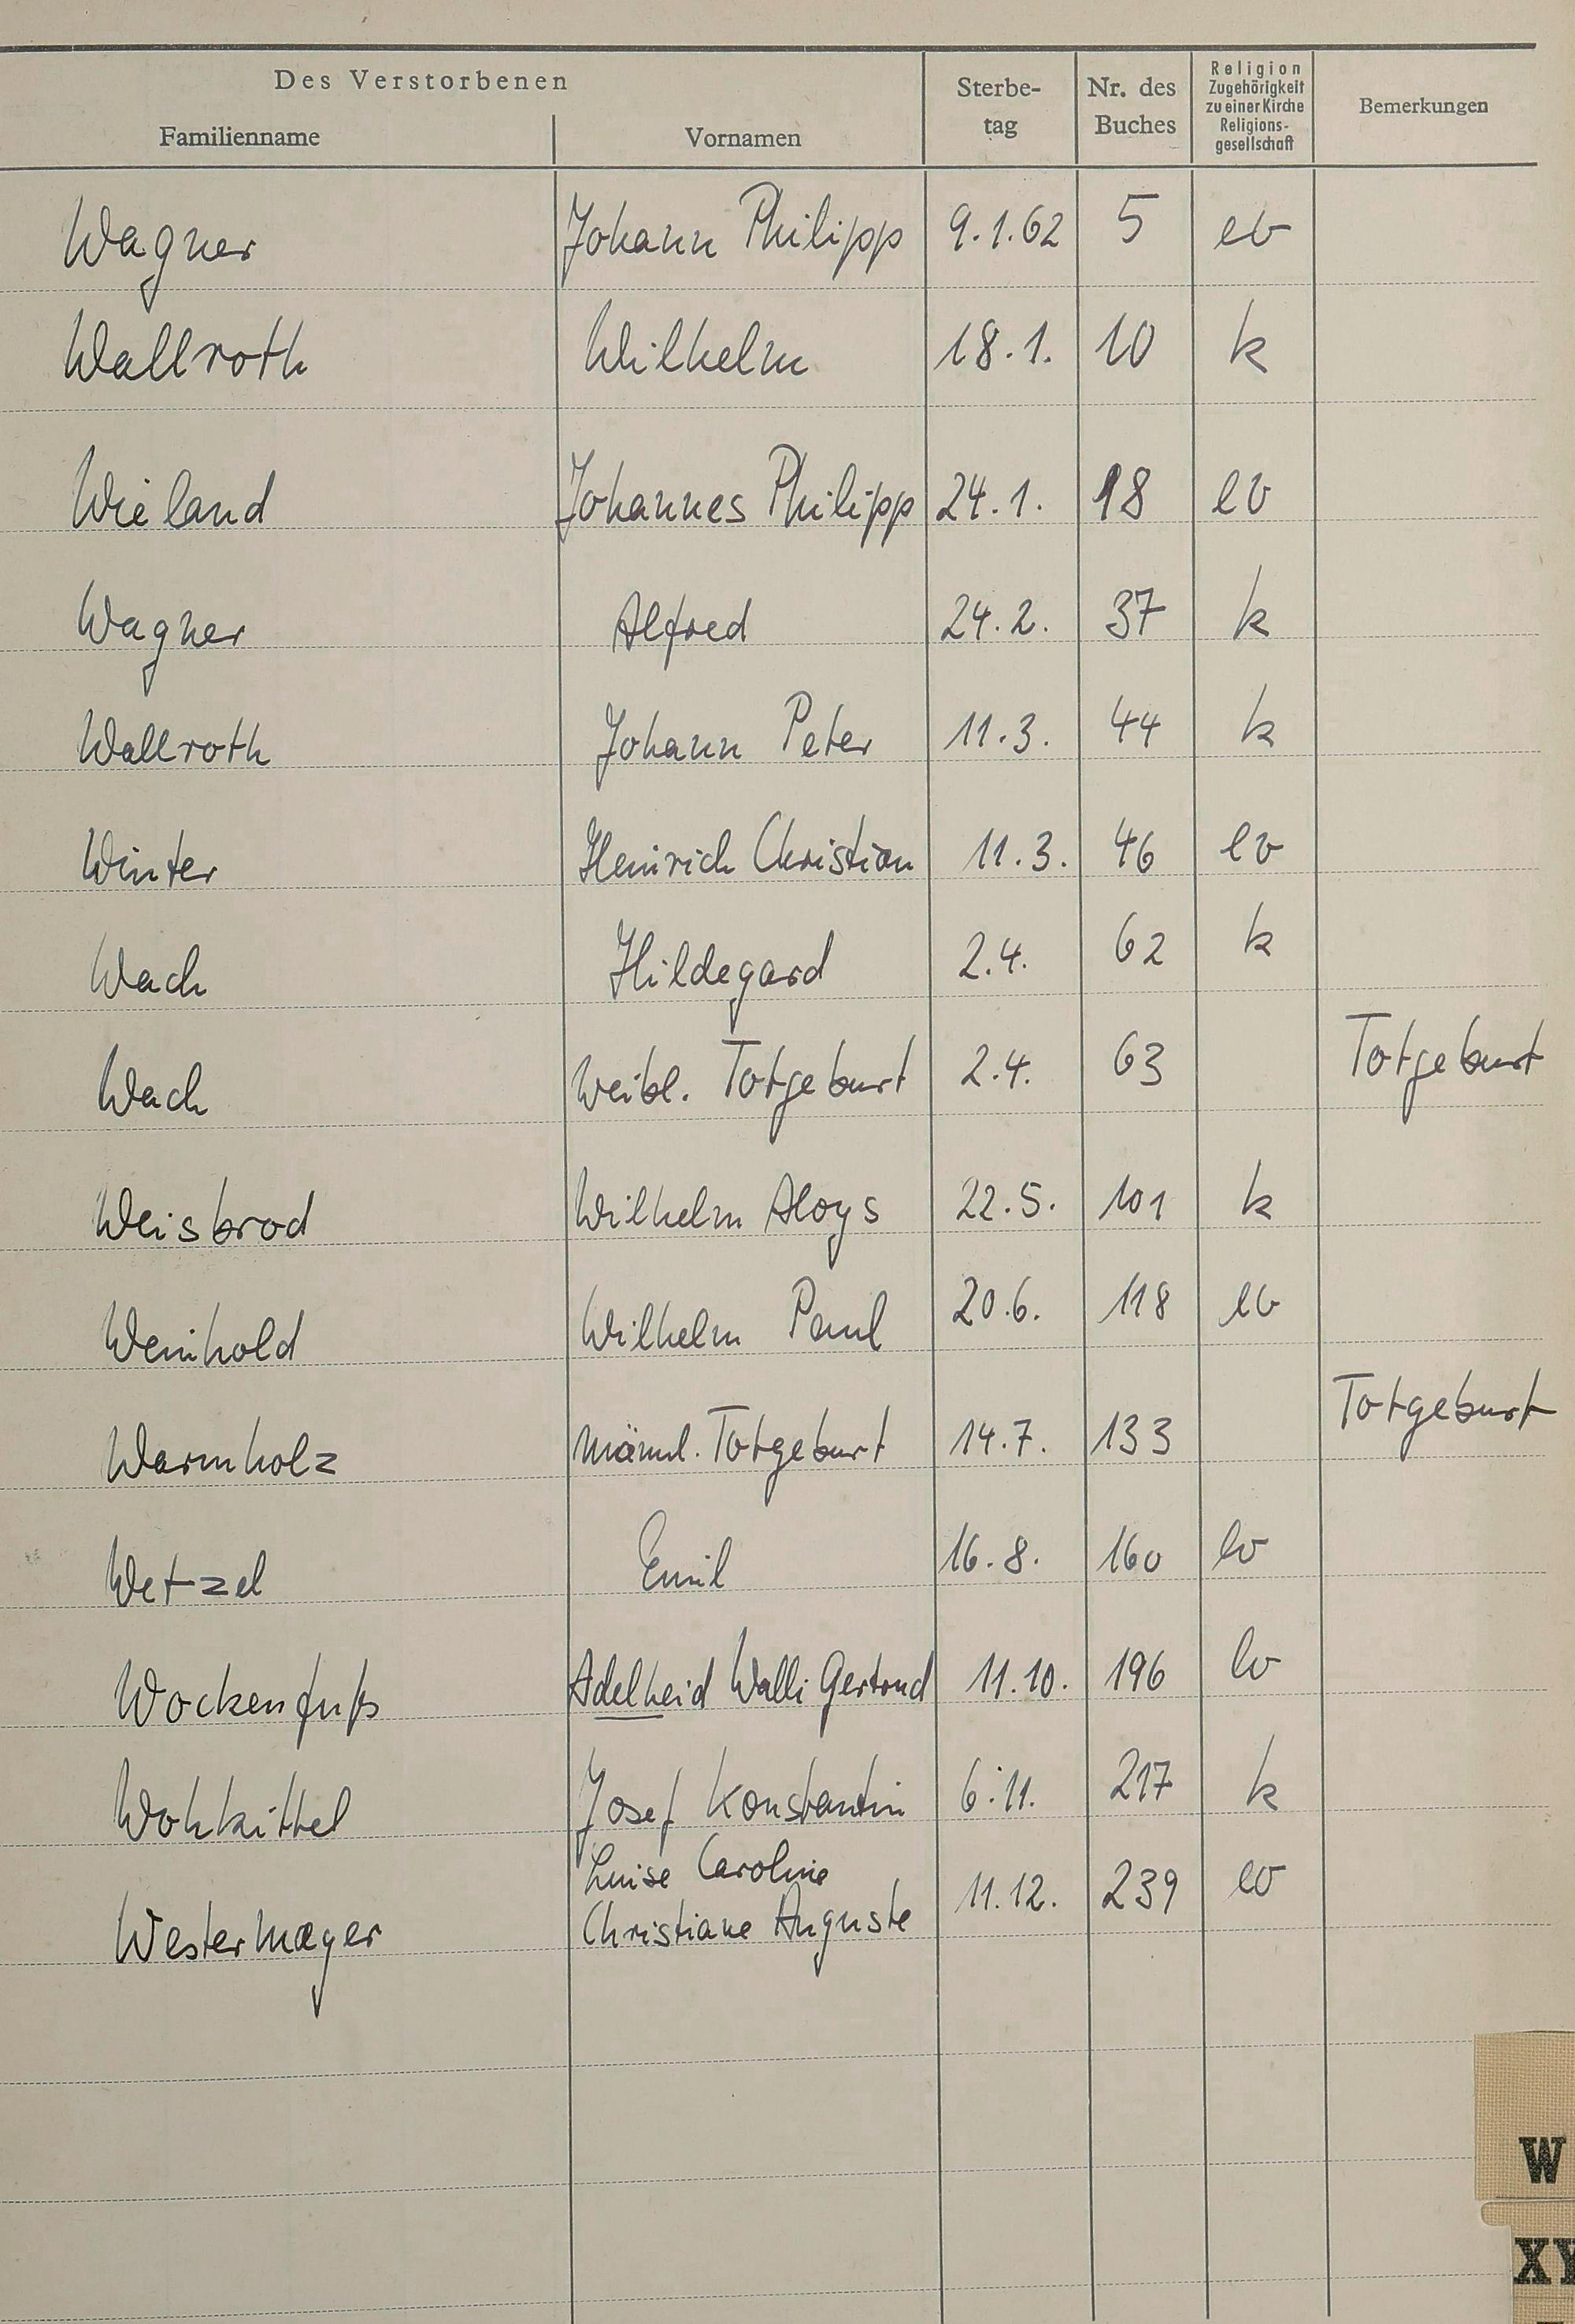 Des Verstorbenen
Familienname Vornamen Sterbe-tag Nr. des Buches Religion Zugehörigkeit zu einer Kirche Religions-gesellschaft Bemerkungen
Wagner Johann Philipp 9.1.62 5 ev
Wallroth Wilhelm 18.1. 10 k
Wieland Johannes Philipp 24.1. 18 ev
Wagner Alfred 24.2. 37 k
Wallroth Johann Peter 11.3. 44 k
Winter Heinrich Christian 11.3. 46 ev
Wach Hildegard 2.4. 62 k
Wach Weibl. Totgeburt 2.4. 63 Totgeburt
Weisbrod Wilhelm Aloys 22.5. 101 k
Weinhold Wilhelm Paul 20.6. 118 ev
Warmholz Männl. Totgeburt 14.7. 133 Totgeburt
Wetzel Emil 16.8. 160 ev
Wockenfuß Adelheid Walli Gertrud 11.10. 196 ev
Wohkittel Josef Konstantin 6.11. 217 k
Luise Caroline
Westermayer Christiane Auguste 11.12. 239 ev
W
XY